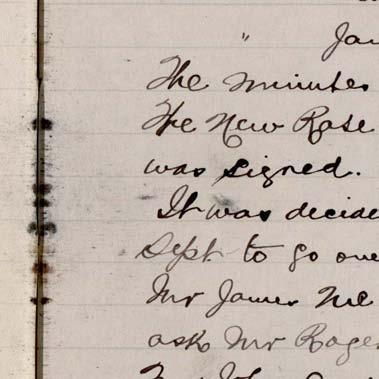 " Jan
The minutes
The New Rose
was signed.
It was decide
Sept to go ove
Mr James Mc
ask Mr Roge